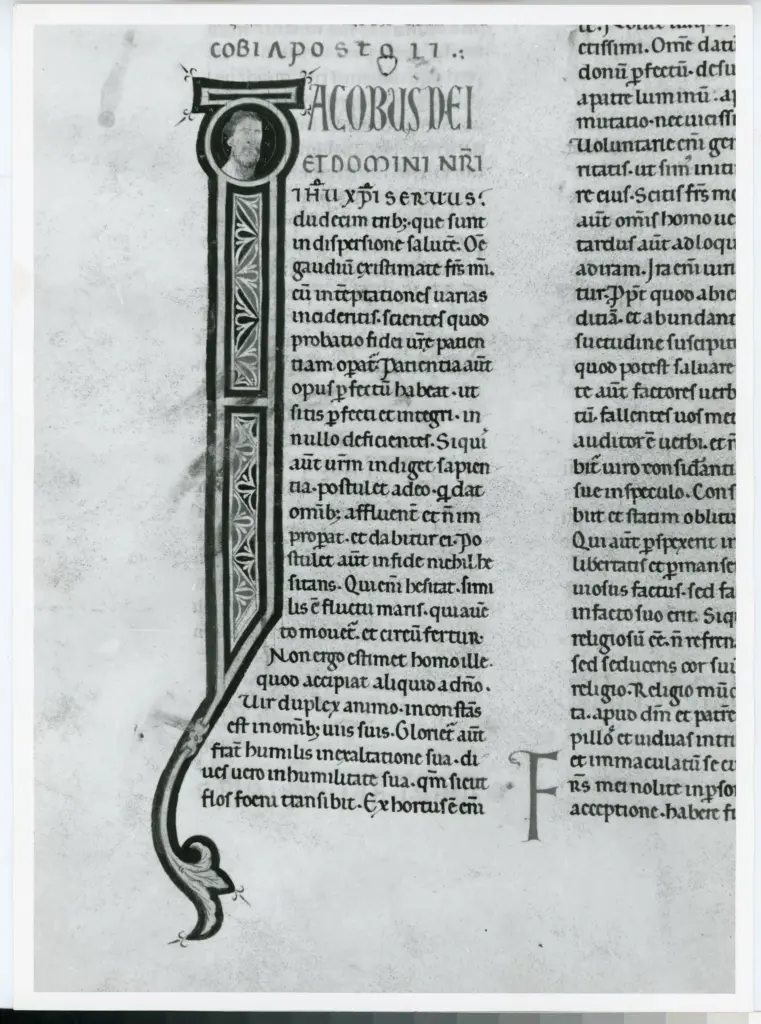 cobi apostoli.:
Iacobus dei
et domini nr̄i
ih̄u xp̄i seruus.
duodecim trib; que sunt
in dispersione salutē. Om̄e
gaudiū existimate frs̄ mi.
cū in tēptationes uarias
incideritis. scientes quod
probatio fidei ur̄e patien
tiam opat̄. Patientia aūt
opus pfectū habeat. ut
sitis pfecti et integri. in
nullo deficientes. Siqui
aūt ur̄m indiget sapien
tia. postulet adeo. q dat
omib; affluent̄ et n̄ im
propat. et dabitur ei. Po
stulet aūt infide nichil he
sitans. Qui eni hesitat. simi
lis ē fluctu maris. qui aue
to mouet̄. et circūfertur.
Non ergo estimet homo ille.
quod accipiat aliquid a dn̄o.
Uir duplex animo. inconstās
est in omib; uiis suis. Gloriet̄ aūt
frat̄ humilis inexaltatione sua. di
ues uero in humilitate sua. qm̄ sicut
flos foeni transibit. Exhortus ē eni
ctissimi. Om̄e datū
donū pfectū. desu
a patre luminū. ap
mutatio. nec uicissi
Uoluntarie eni gen
ritatis. ut sim̄ initi
re eius. Scitis frs̄ me
aūt omis homo ue
tardus aūt ad loqu
ad iram. Ira eni uiri
tur. Ppt̄ quod abic
ditiā. et abundant
suetudine suscipit
quod potest saluare
te aūt factores uerb
tū. fallentes uosmet
auditor ē uerbi. et n̄
bit̄ uiro considānti
sue in speculo. Cons
biit et statim oblitu
Qui aūt pspexerit in
libertatis et pmanse
uiosus factus. sed fa
in facto suo erit. Siq
religiosū ēē. n̄ refren
sed seducens cor suū
religio. Religio mūd
ta. apud dm̄ et patrē
pillos et uiduas in tri
et immaculatū se cu
Frs̄ mei nolite in pson
acceptione. habere fi